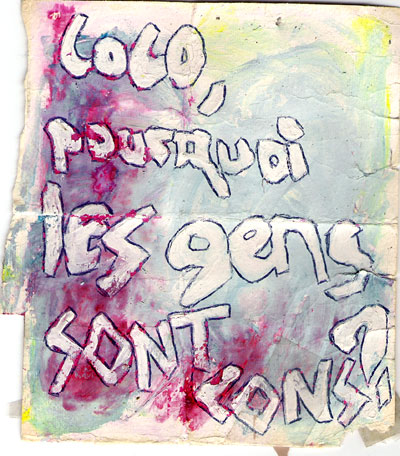 COCO,
pourquoi
les gens
SONT CONS?